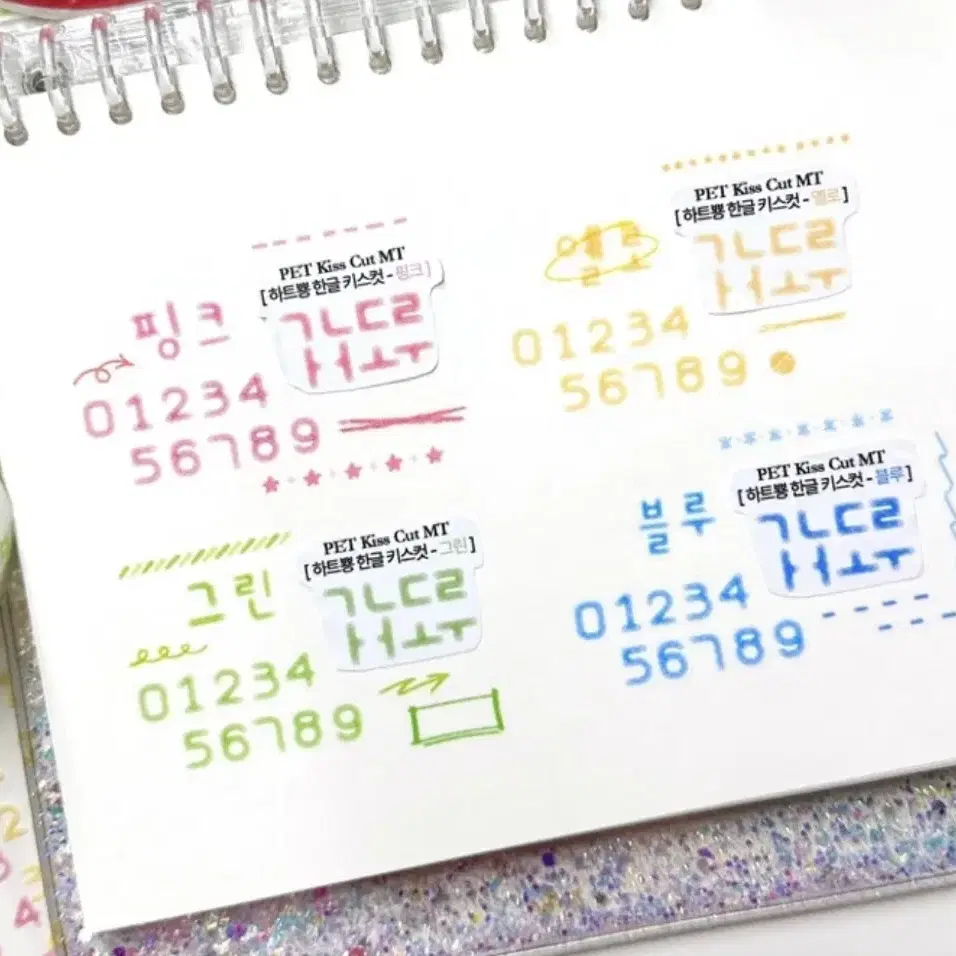 PET Kiss Cut MT
[ 하트뿅 한글 키스컷 - 핑크 ]
ㄱㄴㄷㄹ
ㅏㅓㅗㅜ
핑크
01234
56789
PET Kiss Cut MT
[ 하트뿅 한글 키스컷 - 옐로 ]
ㄱㄴㄷㄹ
ㅏㅓㅗㅜ
옐로
01234
56789
PET Kiss Cut MT
[ 하트뿅 한글 키스컷 - 그린 ]
ㄱㄴㄷㄹ
ㅏㅓㅗㅜ
그린
01234
56789
PET Kiss Cut MT
[ 하트뿅 한글 키스컷 - 블루 ]
ㄱㄴㄷㄹ
ㅏㅓㅗㅜ
블루
01234
56789
2
4